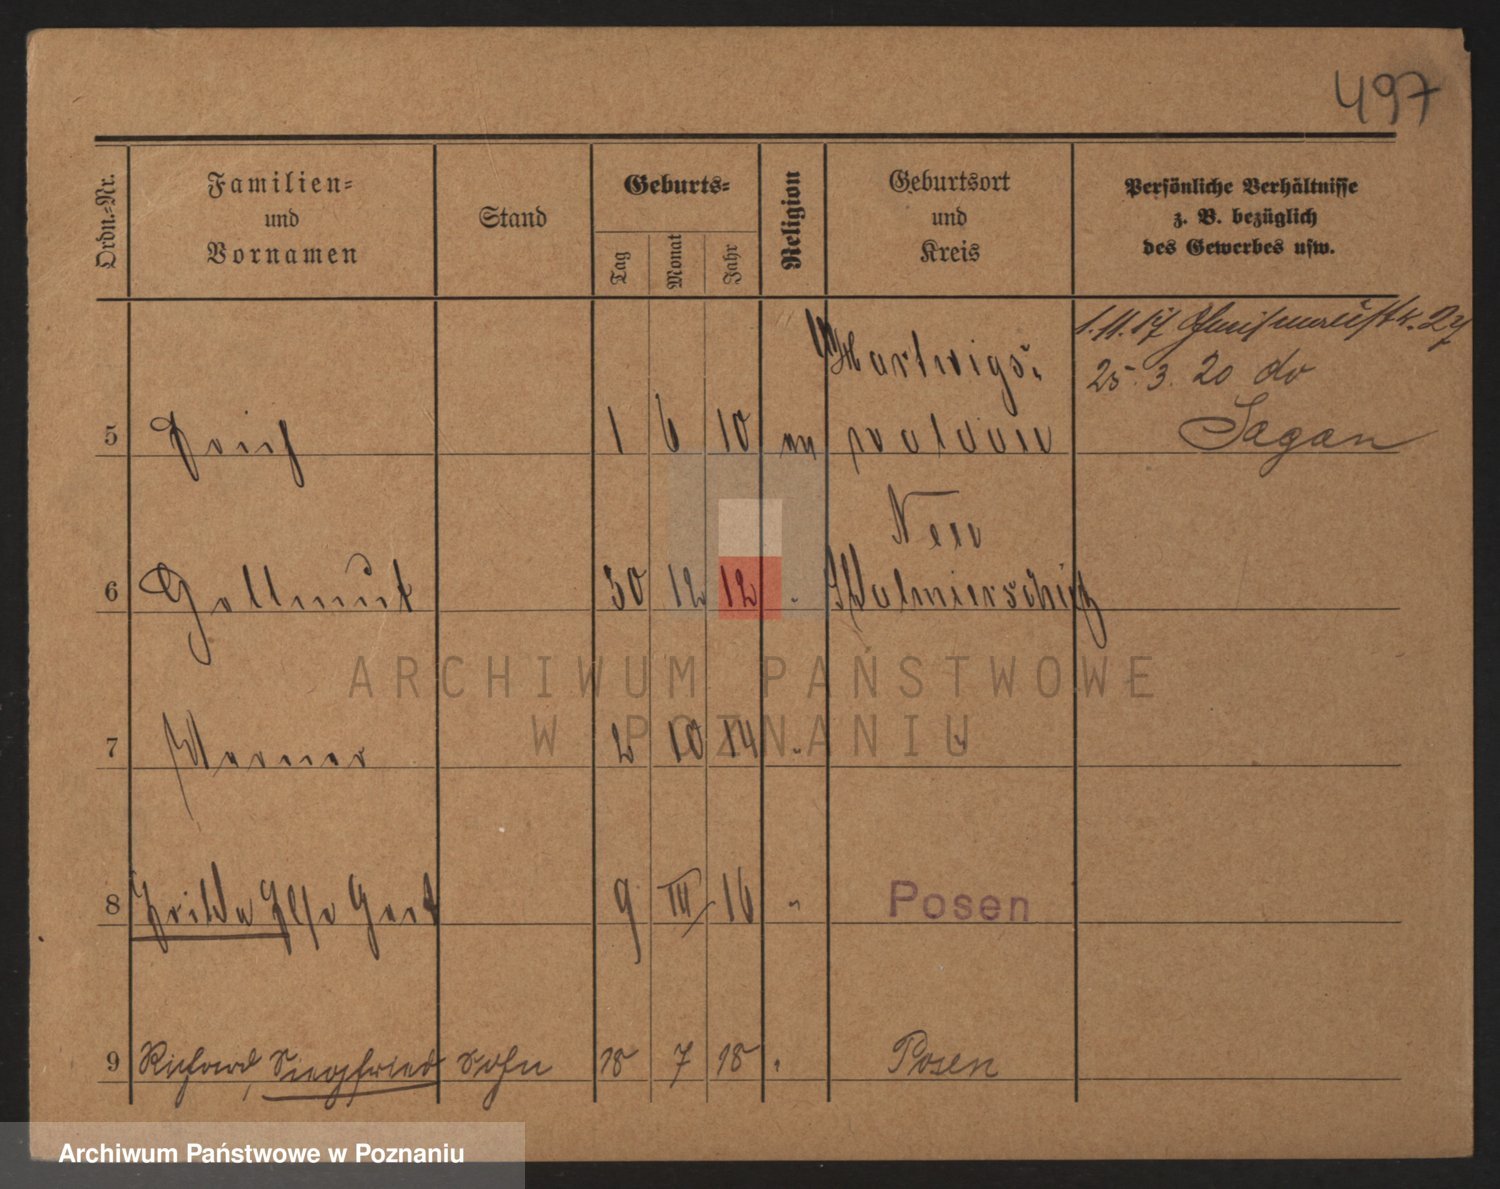 497
Ordn.-Nr.
Familien-
und
Vornamen
Stand
Geburts-
Tag
Monat
Jahr
Religion
Geburtsort
und
Kreis
Persönliche Verhältnisse
z. B. bezüglich
des Gewerbes usw.
1.11.17
25. 3. 20 do
Sagan
Hartwigs-
5 Erich 1 6 10 waldau
Neu
6 Hellmut 30 12 12 "
7 Werner 2 10 14 " "
8 Hilda Else Gert 9 III 16 " Posen
9 Richard, Siegfried Sohn 18 7 18 " Posen
ARCHIWUM PAŃSTWOWE
W POZNANIU
Archiwum Państwowe w Poznaniu